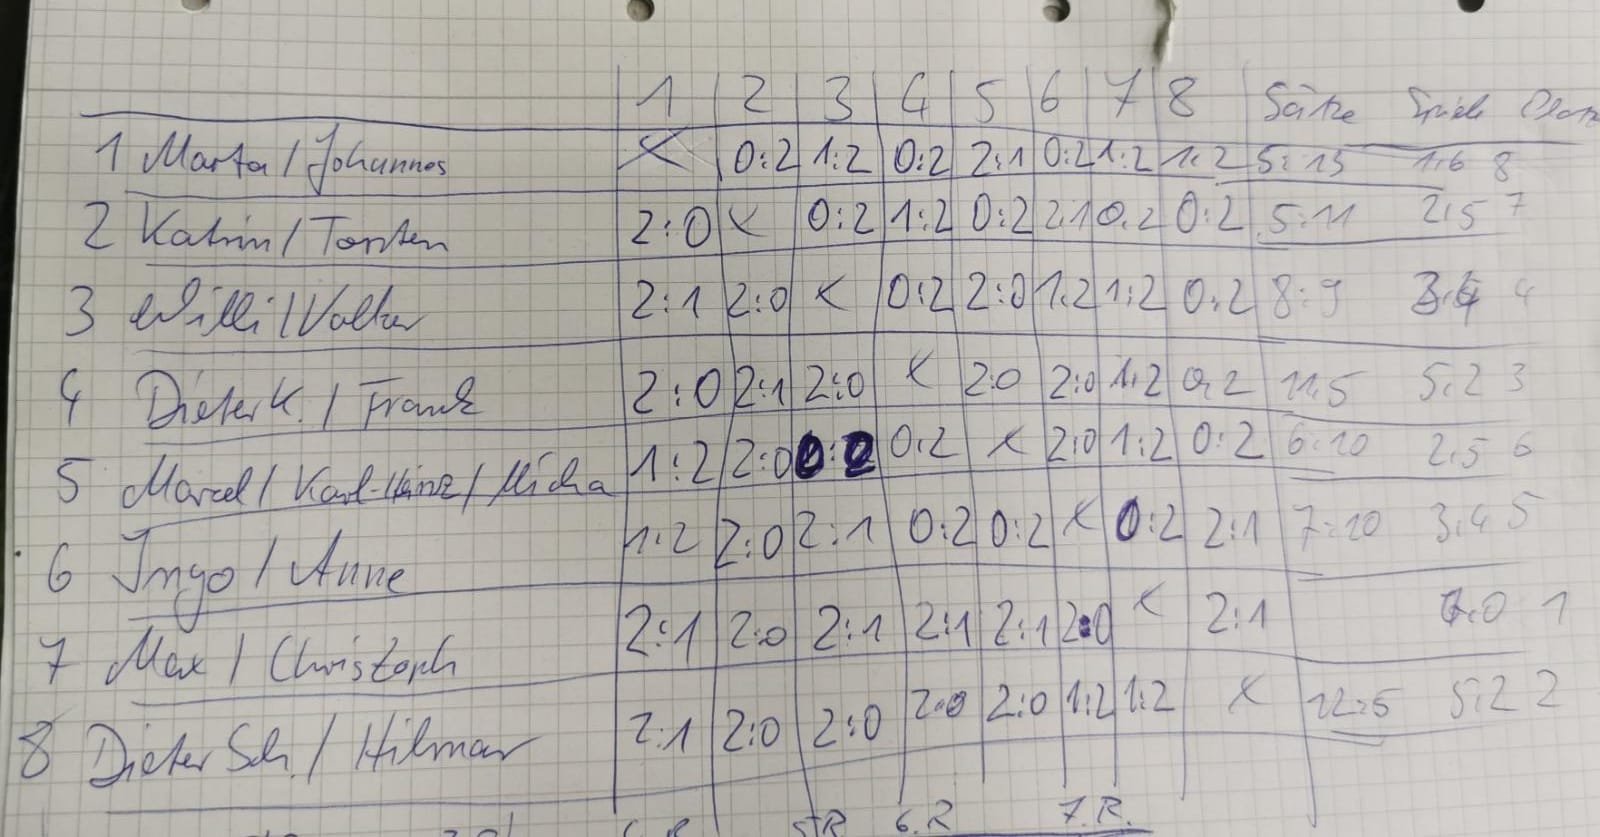 1 2 3 4 5 6 7 8 Sätze Spiele Platz
1 Marta / Johannes X 0:2 1:2 0:2 2:1 0:2 1:2 1:2 5:13 1:6 8
2 Katrin / Torsten 2:0 X 0:2 1:2 0:2 2:1 0:2 0:2 5:11 2:5 7
3 Willi / Volker 2:1 2:0 X 0:2 2:0 1:2 1:2 0:2 8:9 3:4 4
4 Dieter K. / Frank 2:0 2:1 2:0 X 2:0 2:0 1:2 0:2 11:5 5:2 3
5 Marcel / Karl-Heinz / Micha 1:2 2:0 0:2 0:2 X 2:0 1:2 0:2 6:10 2:5 6
6 Ingo / Anne 1:2 2:0 2:1 0:2 0:2 X 0:2 2:1 7:10 3:4 5
7 Max / Christoph 2:1 2:0 2:1 2:1 2:1 2:0 X 2:1 7:0 1
8 Dieter Sch. / Hilmar 2:1 2:0 2:0 2:0 2:0 1:2 1:2 X 12:5 5:2 2
5R 6.R 7.R.